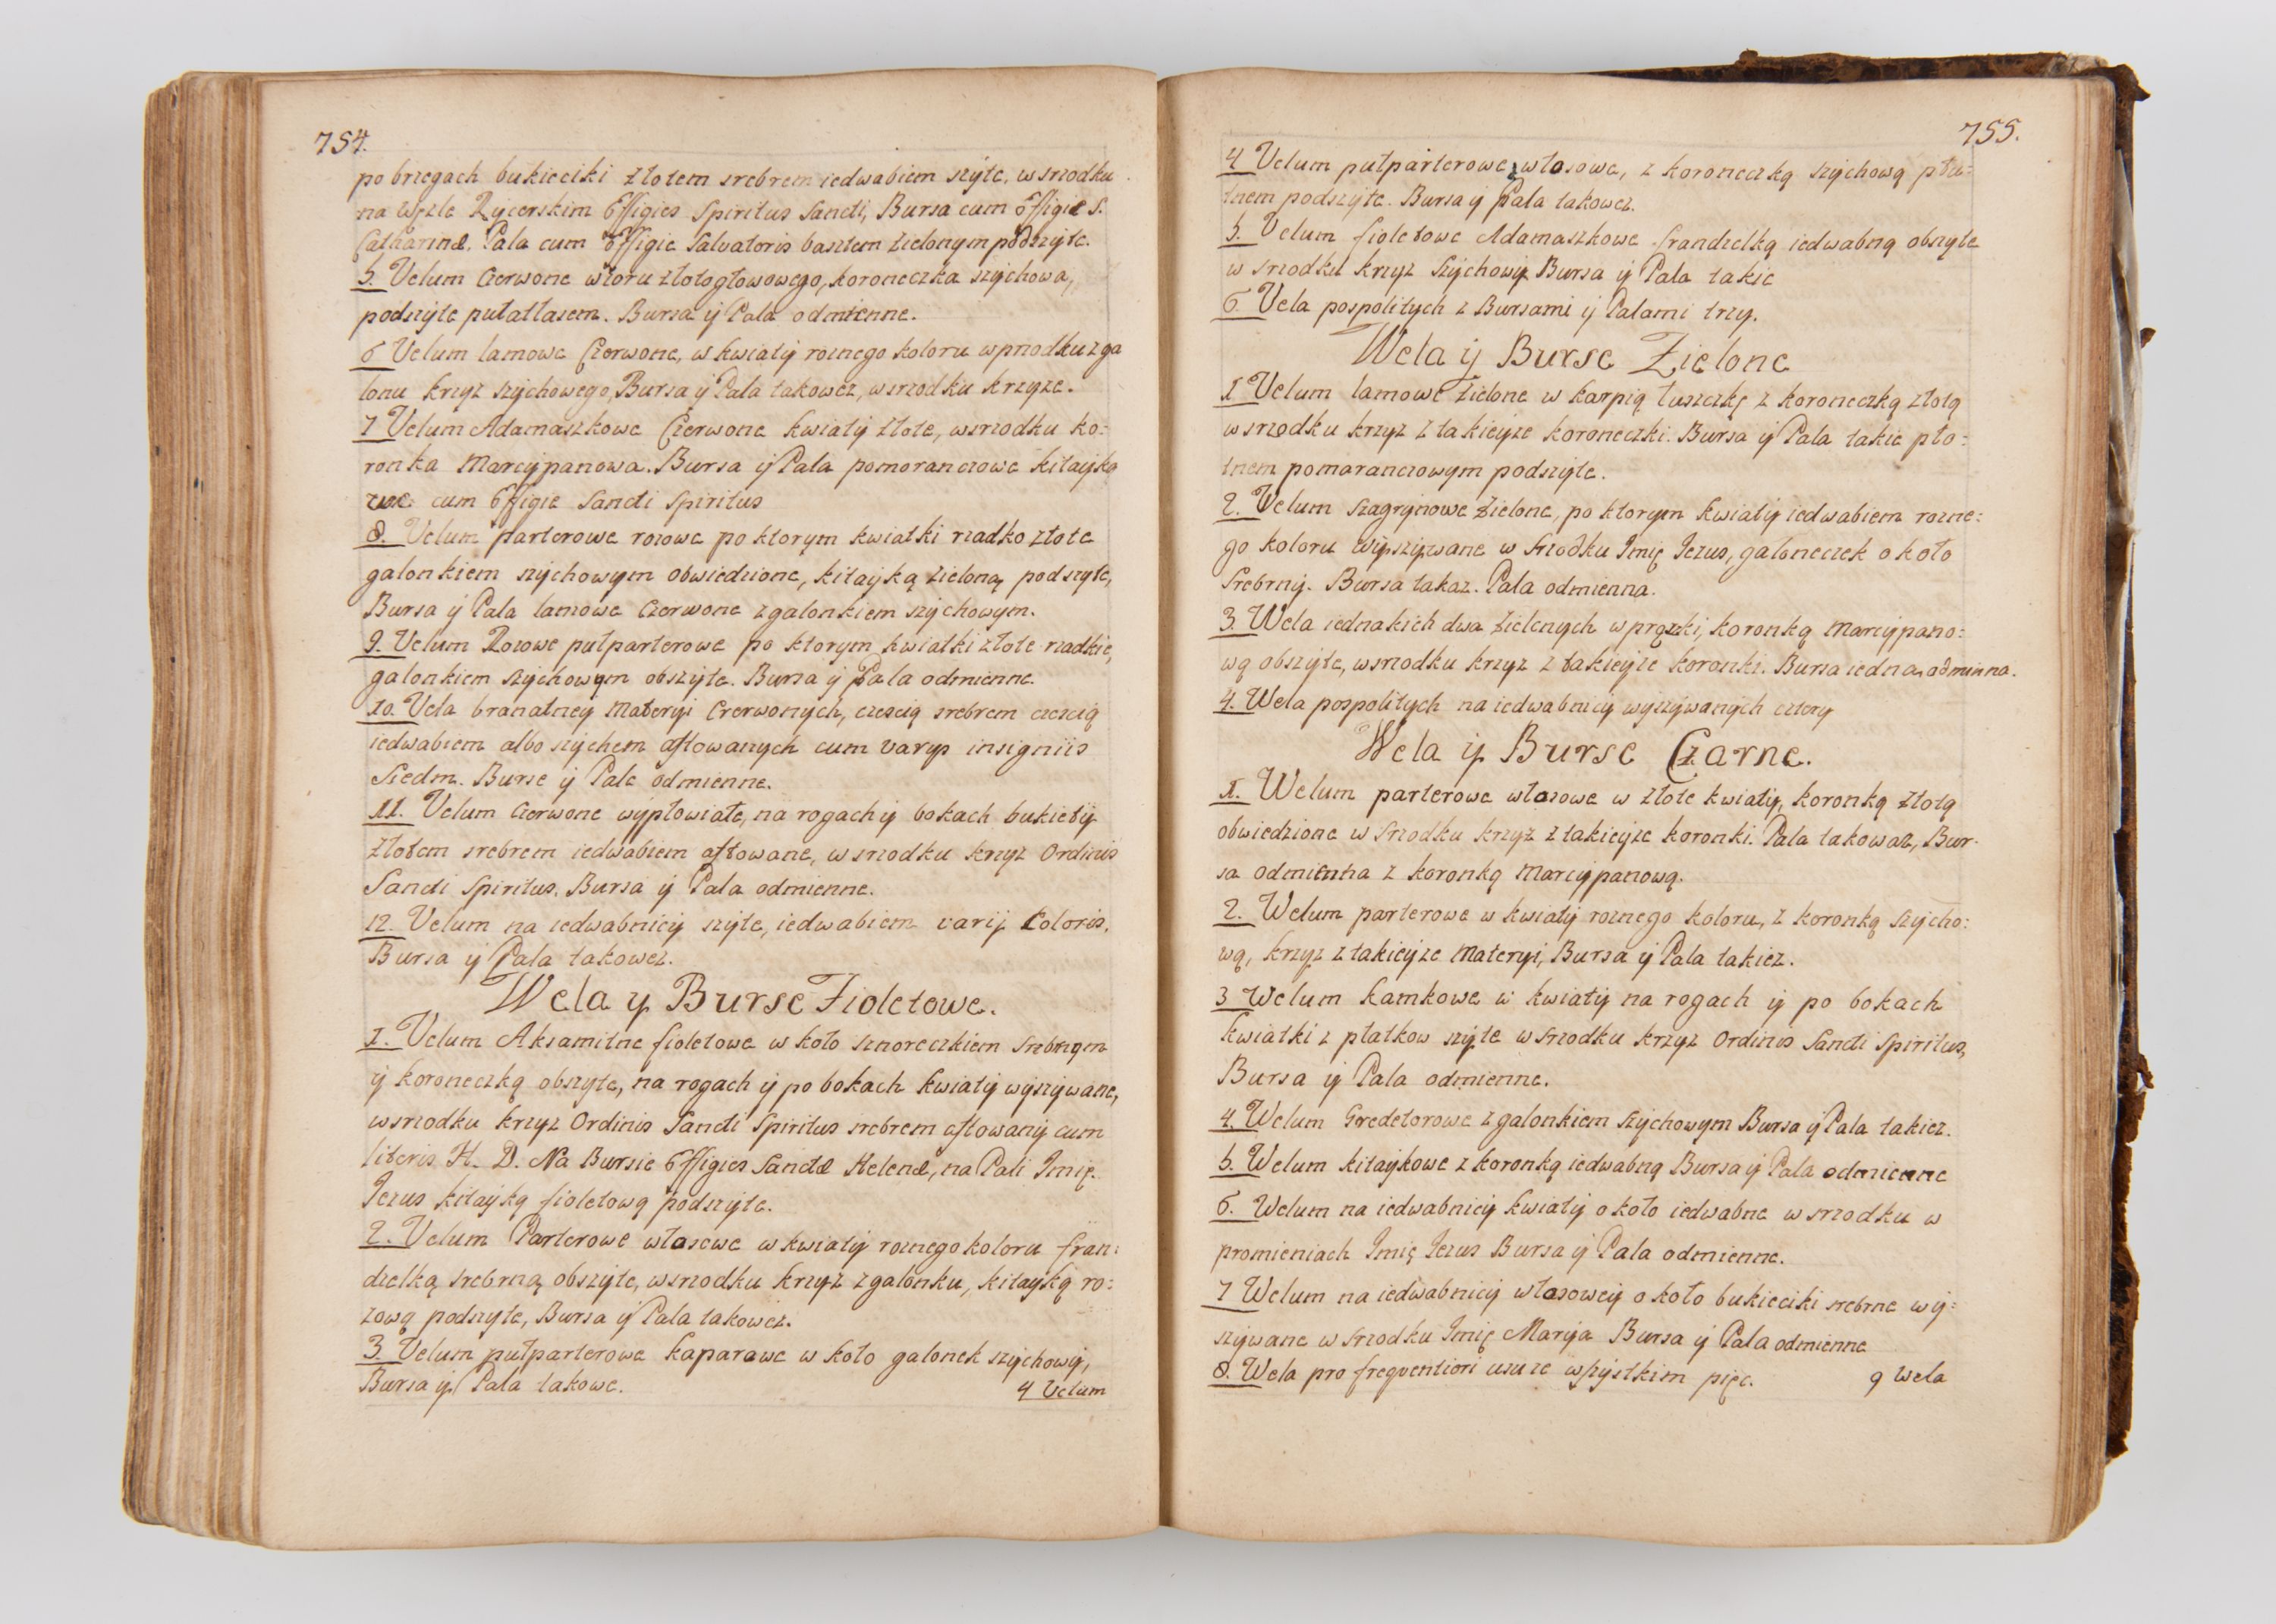 754.
po brzegach bukieciki złotem srebrem iedwabiem szyte, w srzodku
na węzle Rycerskim Effigies Spiritus Sancti, Bursa cum Effigie S.
Catharinæ. Pala cum Effigie Salvatoris basztem zielonym podszyte.
5. Velum Czerwone wtoru złotogłowowego, koroneczka szychowa,
podszyte pułatłasem. Bursa ÿ Pala odmienne.
6 Velum lamowe Czerwone, w kwiatÿ roznego koloru w przodku z ga
lonu krzyz szychowego, Bursa ÿ Pala takowez, w srzodku krzyze.
7 Velum Adamaszkowe Czerwone kwiatÿ złote, wsrzodku ko:
ronka Marcÿpanowa. Bursa ÿ Pala pomoranczowe kitaÿko
we cum Effigie Sancti Spiritus
8. Velum parterowe rozowe po ktorym kwiatki rzadko złote
galonkiem szÿchowym obwiedzione, kitaÿką zieloną podszyte,
Bursa ÿ Pala lamowe Czerwone z galonkiem szÿchowym.
9. Velum Rozowe pułparterowe po ktorym kwiatki złote rzadkie,
galonkiem szÿchowym obszÿte. Bursa ÿ Pala odmienne.
10. Vela branatneÿ Materÿi Czerwonych, czescią srebrem czescią
iedwabiem albo szÿchem aftowanych cum varijs insigniis
Siedm. Burse ÿ Pale odmienne.
11. Velum Czerwone wÿpłowiałe, na rogach ÿ bokach bukietÿ
złotem srebrem iedwabiem aftowane, w srzodku krzyz Ordinis
Sancti Spiritus. Bursa ÿ Pala odmienne.
12. Velum na iedwabnicÿ szÿte, iedwabiem varij Coloris,
Bursa ÿ Pala takowez.
Wela y Burse Fioletowe.
1. Velum Aksamitne fioletowe w koło sznoreczkiem srebrnym
ÿ koroneczką obszyte, na rogach ÿ po bokach kwiatÿ wÿszÿwane,
wsrzodku krzyz Ordinis Sancti Spiritus srebrem aftowanÿ cum
literis H. D. Na Bursie Effigies Sanctæ Helenæ, na Pali Imię
Jezus kitaÿką fioletową podszyte.
2. Velum Parterowe włosowe w kwiatÿ roznego koloru fran:
dzelką srebrną obszÿte, wsrzodku krzyz z galonku, kitaÿką ro:
zową podszyte, Bursa ÿ Pala takowez.
3. Velum pułparterowe kaparowe w koło galonek szÿchowÿ,
Bursa ÿ Pala takowe.
4 Velum
755.
4 Velum pułparterowe włosowe, z koroneczką szychową płu:
tnem podszyte. Bursa ÿ Pala takowez.
5. Velum fioletowe Adamaszkowe frandzelką iedwabną obszyte
w srzodku krzyz szÿchowÿ Bursa ÿ Pala takie
6. Vela pospolitych z Bursami ÿ Palami trzy.
Wela ÿ Burse Zielone
1 Velum lamowe zielone w karpią łuszczkę z koroneczką złotą
w srzodku krzyz z takieÿze koroneczki. Bursa ÿ Pala takie pło:
tnem pomaranczowym podszÿte.
2. Velum szagrÿnowe zielone, po ktorym kwiatÿ iedwabiem rozne:
go koloru wÿszÿwane w srzodku Imię Jezus, galoneczek około
Srebrnÿ. Bursa takaz. Pala odmienna.
3. Wela iednakich dwa zielonych w prązki, koronką Marcÿpano:
wą obszÿte, w srzodku krzyz z takieÿze koronki. Bursa iedna odminna.
4. Wela pospolitych na iedwabnicÿ wÿszÿwanÿch cztery
Wela ÿ Burse Czarne.
1. Welum parterowe włosowe w złote kwiatÿ, koronką złotą
obwiedzione w srzodku krzyz z takieÿze koronki. Pala takowaz, Bur-
sa odmienna z koronką Marcÿpanową.
2. Welum parterowe w kwiatÿ roznego koloru, z koronką szÿcho:
wą, krzyz z takieÿze Materyi, Bursa ÿ Pala takiez.
3 Welum kamkowe w kwiatÿ na rogach ÿ po bokach
kwiatki z płatkow szÿte w srzodku krzyz Ordinis Sancti Spiritus,
Bursa ÿ Pala odmienne.
4. Welum Gredetorowe z galonkiem szÿchowym Bursa ÿ Pala takiez.
5. Welum kitaÿkowe z koronką iedwabną Bursa ÿ Pala odmienne
6. Welum na iedwabnicÿ kwiatÿ około iedwabne w srzodku w
promieniach Imię Jezus Bursa ÿ Pala odmienne.
7 Welum na iedwabnicÿ włosoweÿ około bukieciki srebrne wÿ:
szÿwane w srzodku Imię Marÿa Bursa ÿ Pala odmienne
8. Wela pro freqventiori usu ze wszÿstkim pięc.
9 Wela